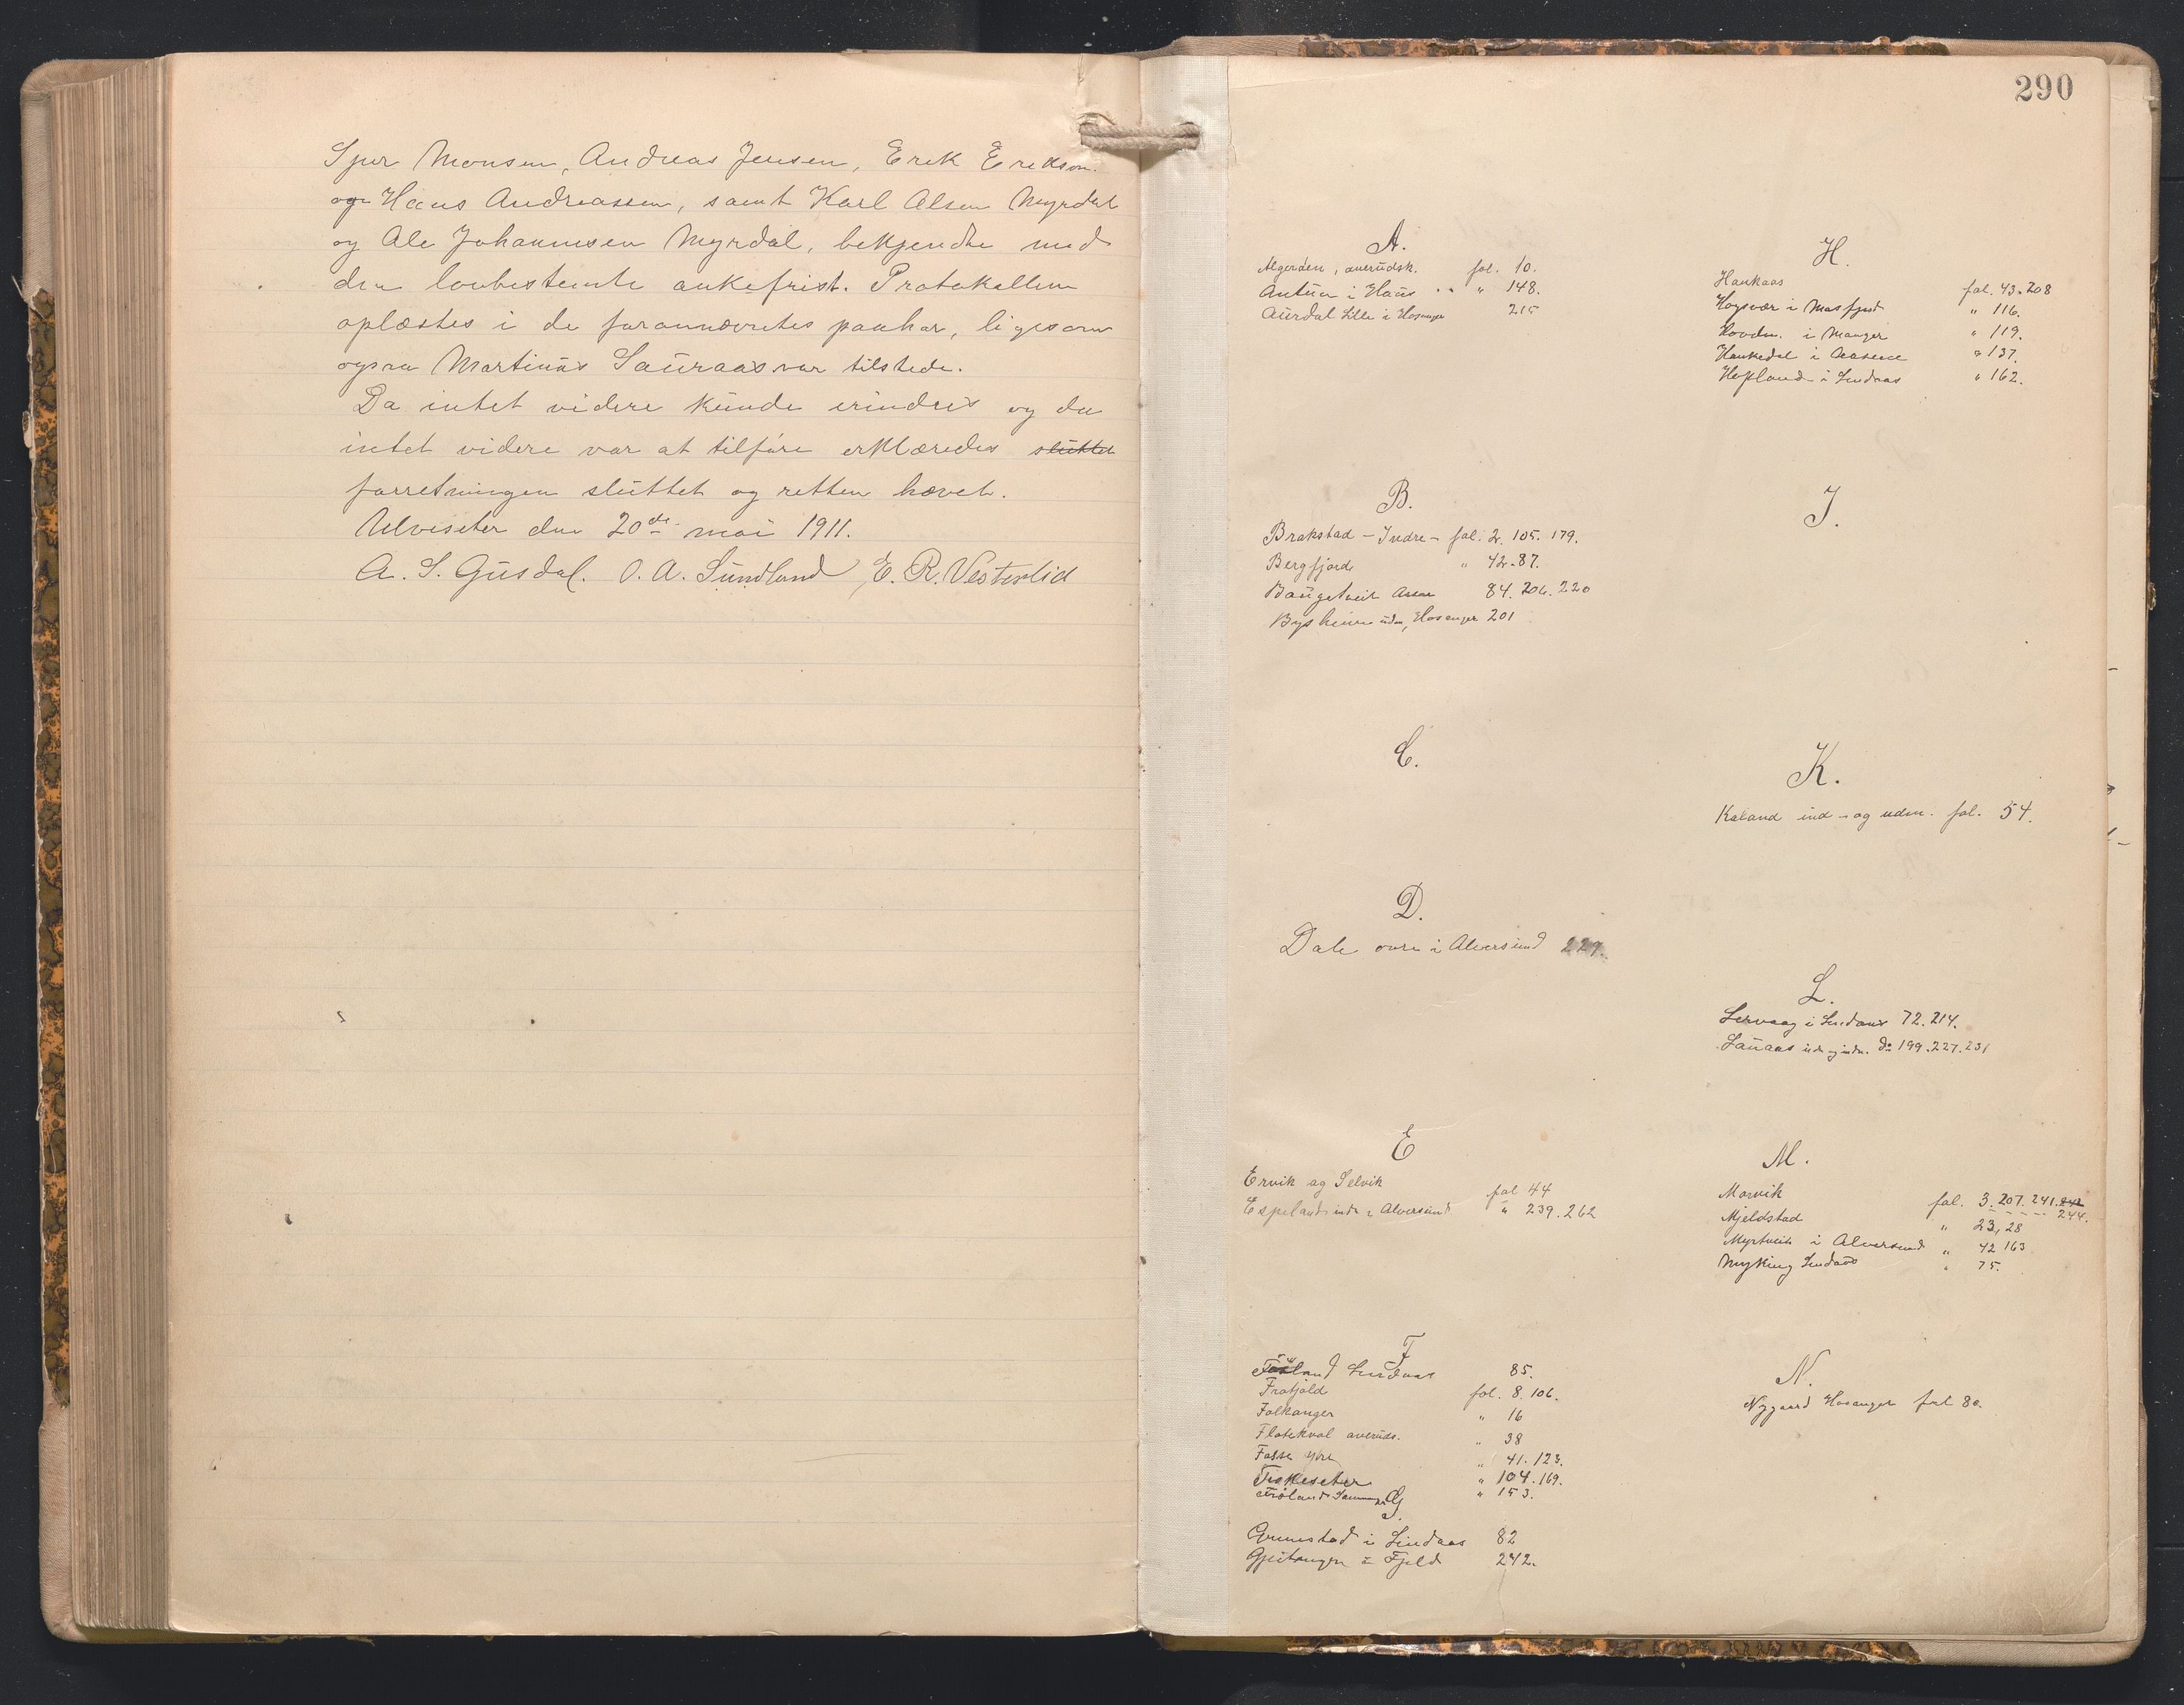 Sjur Monsen, Andreas Jensen, Erik Erikson.
og Hans Andreassen, samt Karl Olsen Myrdal
og Ole Johannesen Myrdal, bekjendte med
den lovbestemte ankefrist. Protokollen
oplæstes i de forannævntes paahør, ligesom
ogsaa Martinus Sauraas var tilstede.
Da intet videre kunde erindres og da
intet videre var at tilføre erklæredes sluttet
forretningen sluttet og retten hævet.
Ulveseter den 20de mai 1911.
A. S. Gusdal. O. A. Sundland E. R. Vesterlid
290
A.
Algerøen, overudsk. fol. 10.
Antun i Haus " " 148.
Aurdal Lille i Hosanger 215
B.
Brakstad - Indre - fol. 2. 105. 179.
Bergfjord " 42-87.
Baugstveit 84. 206. 220
Bysheim uden, Hosanger 201
C.
D.
Dale øvre i Alversund 229.
E
Ervik og Selvik fol 44
Espeland indr i Alversund " 239. 262
F
Lindaas 85.
Frotjold fol. 8. 106.
Folkanger " 16
Flatekval overuds. " 38
Fosse ytre " 41. 123.
Fiskeseter " 104. 169.
" 153.
G.
Grunstad i Lindaas 82
i Fjeld 242.
H.
Haukaas fol. 43. 208
Hogsvær i Masfjord " 116.
Hovden. i Manger " 119.
Haukedal i " 137.
Hopland i Lindaas " 162.
J.
K.
Kaland ind- og udm. fol. 54.
L.
Lervaag i Lindaas 72. 214.
Sauraas ud- og indr. do 199. 227. 231
M.
Morvik fol. 3. 207. 241. 242
244.
Mjeldstad " 23, 28
Myrtveit i Alversund " 42 163
Myking Lindaas " 75.
N.
Nygaard Hosanger fol 80.